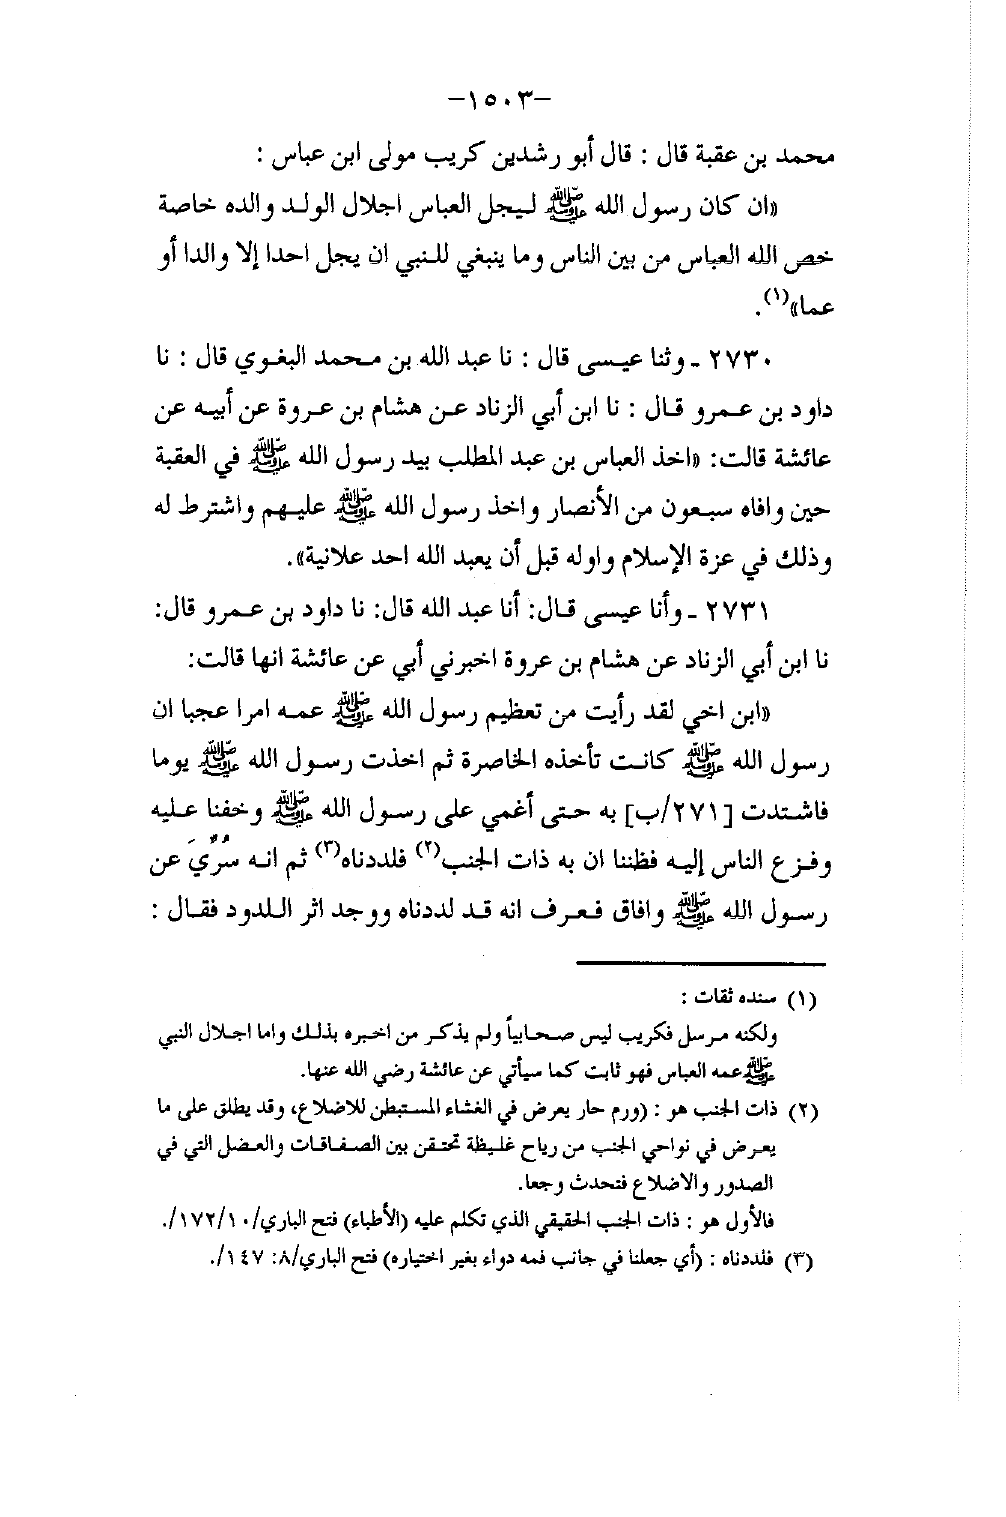 -١٥٠٣-
محمد بن عقبة قال : قال أبو رشدين كريب مولى ابن عباس :
«ان كان رسول الله ﷺ ليجل العباس اجلال الولد والده خاصة
خص الله العباس من بين الناس وما ينبغي للنبي ان يجل احدا إلا والدا أو
عما»(١).
٢٧٣٠ ـ وثنا عيسى قال : نا عبد الله بن محمد البغوي قال : نا
داود بن عمرو قال : نا ابن أبي الزناد عن هشام بن عروة عن أبيه عن
عائشة قالت: «اخذ العباس بن عبد المطلب بيد رسول الله ﷺ في العقبة
حين وافاه سبعون من الأنصار واخذ رسول الله ﷺ عليهم واشترط له
وذلك في عزة الإسلام واوله قبل أن يعبد الله احد علانية».
٢٧٣١ ـ وأنا عيسى قال: أنا عبد الله قال: نا داود بن عمرو قال:
نا ابن أبي الزناد عن هشام بن عروة اخبرني أبي عن عائشة انها قالت:
«ابن اخي لقد رأيت من تعظيم رسول الله ﷺ عمه امرا عجبا ان
رسول الله ﷺ كانت تأخذه الخاصرة ثم اخذت رسول الله ﷺ يوما
فاشتدت [٢٧١/ب] به حتى أغمي على رسول الله ﷺ وخفنا عليه
وفزع الناس إليه فظننا ان به ذات الجنب(٢) فلددناه(٣) ثم انه سُرِّيَ عن
رسول الله ﷺ وافاق فعرف انه قد لددناه ووجد اثر اللدود فقال :
(١) سنده ثقات :
ولكنه مرسل فكريب ليس صحابياً ولم يذكر من اخبره بذلك واما اجلال النبي
ﷺ عمه العباس فهو ثابت كما سيأتي عن عائشة رضي الله عنها.
(٢) ذات الجنب هو : (ورم حار يعرض في الغشاء المستبطن للاضلاع، وقد يطلق على ما
يعرض في نواحي الجنب من رياح غليظة تحتقن بين الصفاقات والعضل التي في
الصدور والاضلاع فتحدث وجعا.
فالأول هو : ذات الجنب الحقيقي الذي تكلم عليه (الأطباء) فتح الباري/١٧٢/١٠/.
(٣) فلددناه : (أي جعلنا في جانب فمه دواء بغير اختياره) فتح الباري/٨: ١٤٧/.